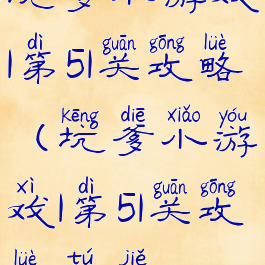 dì guān gōng lüè
|第51关攻略
kēng diē xiǎo yóu
(坑爹小游
xì dì guān gōng
戏|第51关攻
lüè tú jiě